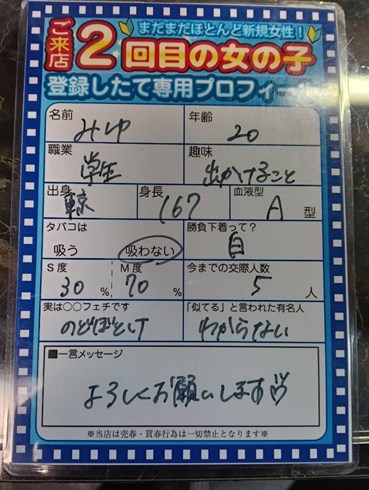 まだまだほとんど新規女性！
ご来店2回目の女の子
登録したて専用プロフィール
名前 みゆ 年齢 20
職業 学生 趣味 出かけること
出身 東京 身長 167 血液型 A型
タバコは 吸う 吸わない 勝負下着って？ 白
S度 30% M度 70% 今までの交際人数 5人
実は○○フェチです のどぼとけ 「似てる」と言われた有名人 わからない
■一言メッセージ
よろしくお願いします♡
※当店は売春・買春行為は一切禁止となります※